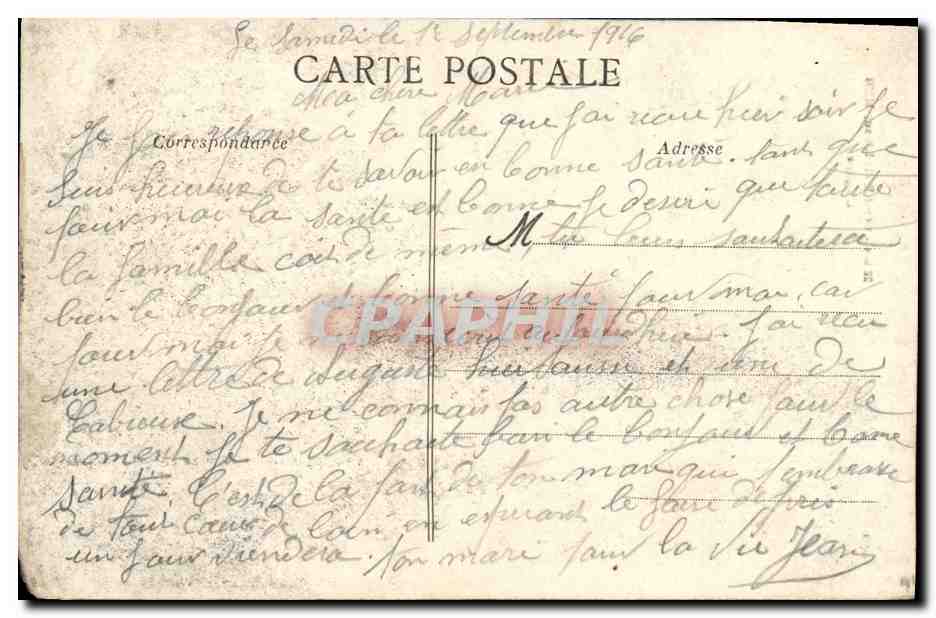 Le Samedi le 12 Septembre 1916
CARTE POSTALE
Ma chère Marie
Je fais réponse à ta lettre que j'ai recue hier soir Je
Correspondance
Adresse
suis heureux de te savoir en bonne santé. tant que
pour moi la santé est bonne Je desire que toute
la famille soit de même M tu leurs souhaitera
bien le bonjour et bonne santé pour moi. car
pour moi je aujourdhui. J'ai recu
une lettre de Auguste hier aussi et une de
Je ne connais pas autre chose pour le
moment Je te souhaite bien le bonjour et bonne
santé. C'est de la part de ton mari qui t'embrasse
de tout coeur de loin en espérant le faire de près
un jour viendera. ton mari pour la vie Jean
CPAPHIL